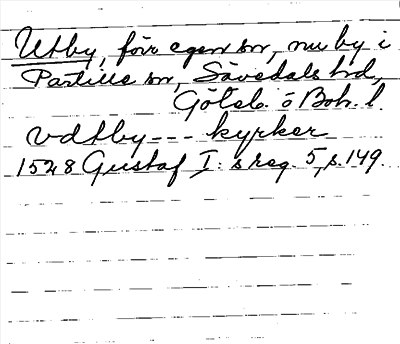 Utby, förr egen sn, nu by i
Partille sn, Sävedals hd,
Göteb. o Boh. l.
Vdtby --- kyrker
1528 Gustaf I:s reg. 5, s. 149.